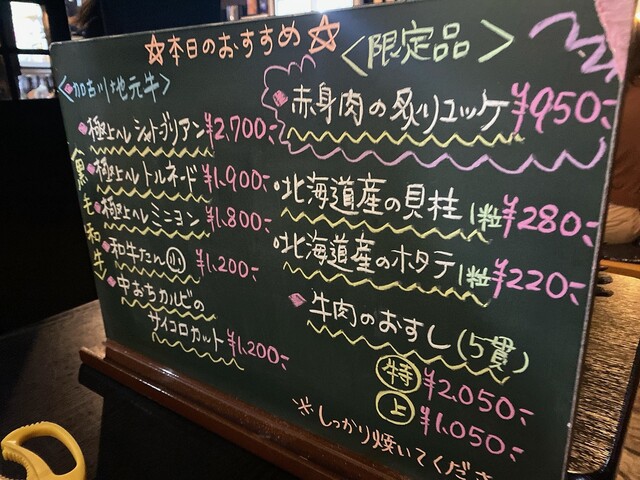 ☆本日のおすすめ☆
<加古川地元牛>
黒毛和牛
極上ヘレシャトーブリアン ¥2,700-
極上ヘレトルネード ¥1,900-
極上ヘレミニヨン ¥1,800-
和牛たん小 ¥1,200-
中おちカルビの
サイコロカット ¥1,200-
<限定品>
赤身肉の炙りユッケ ¥950-
北海道産の貝柱 1粒 ¥280-
北海道産のホタテ 1粒 ¥220-
牛肉のおすし(5貫)
特 ¥2,050-
上 ¥1,050-
※しっかり焼いてくださ